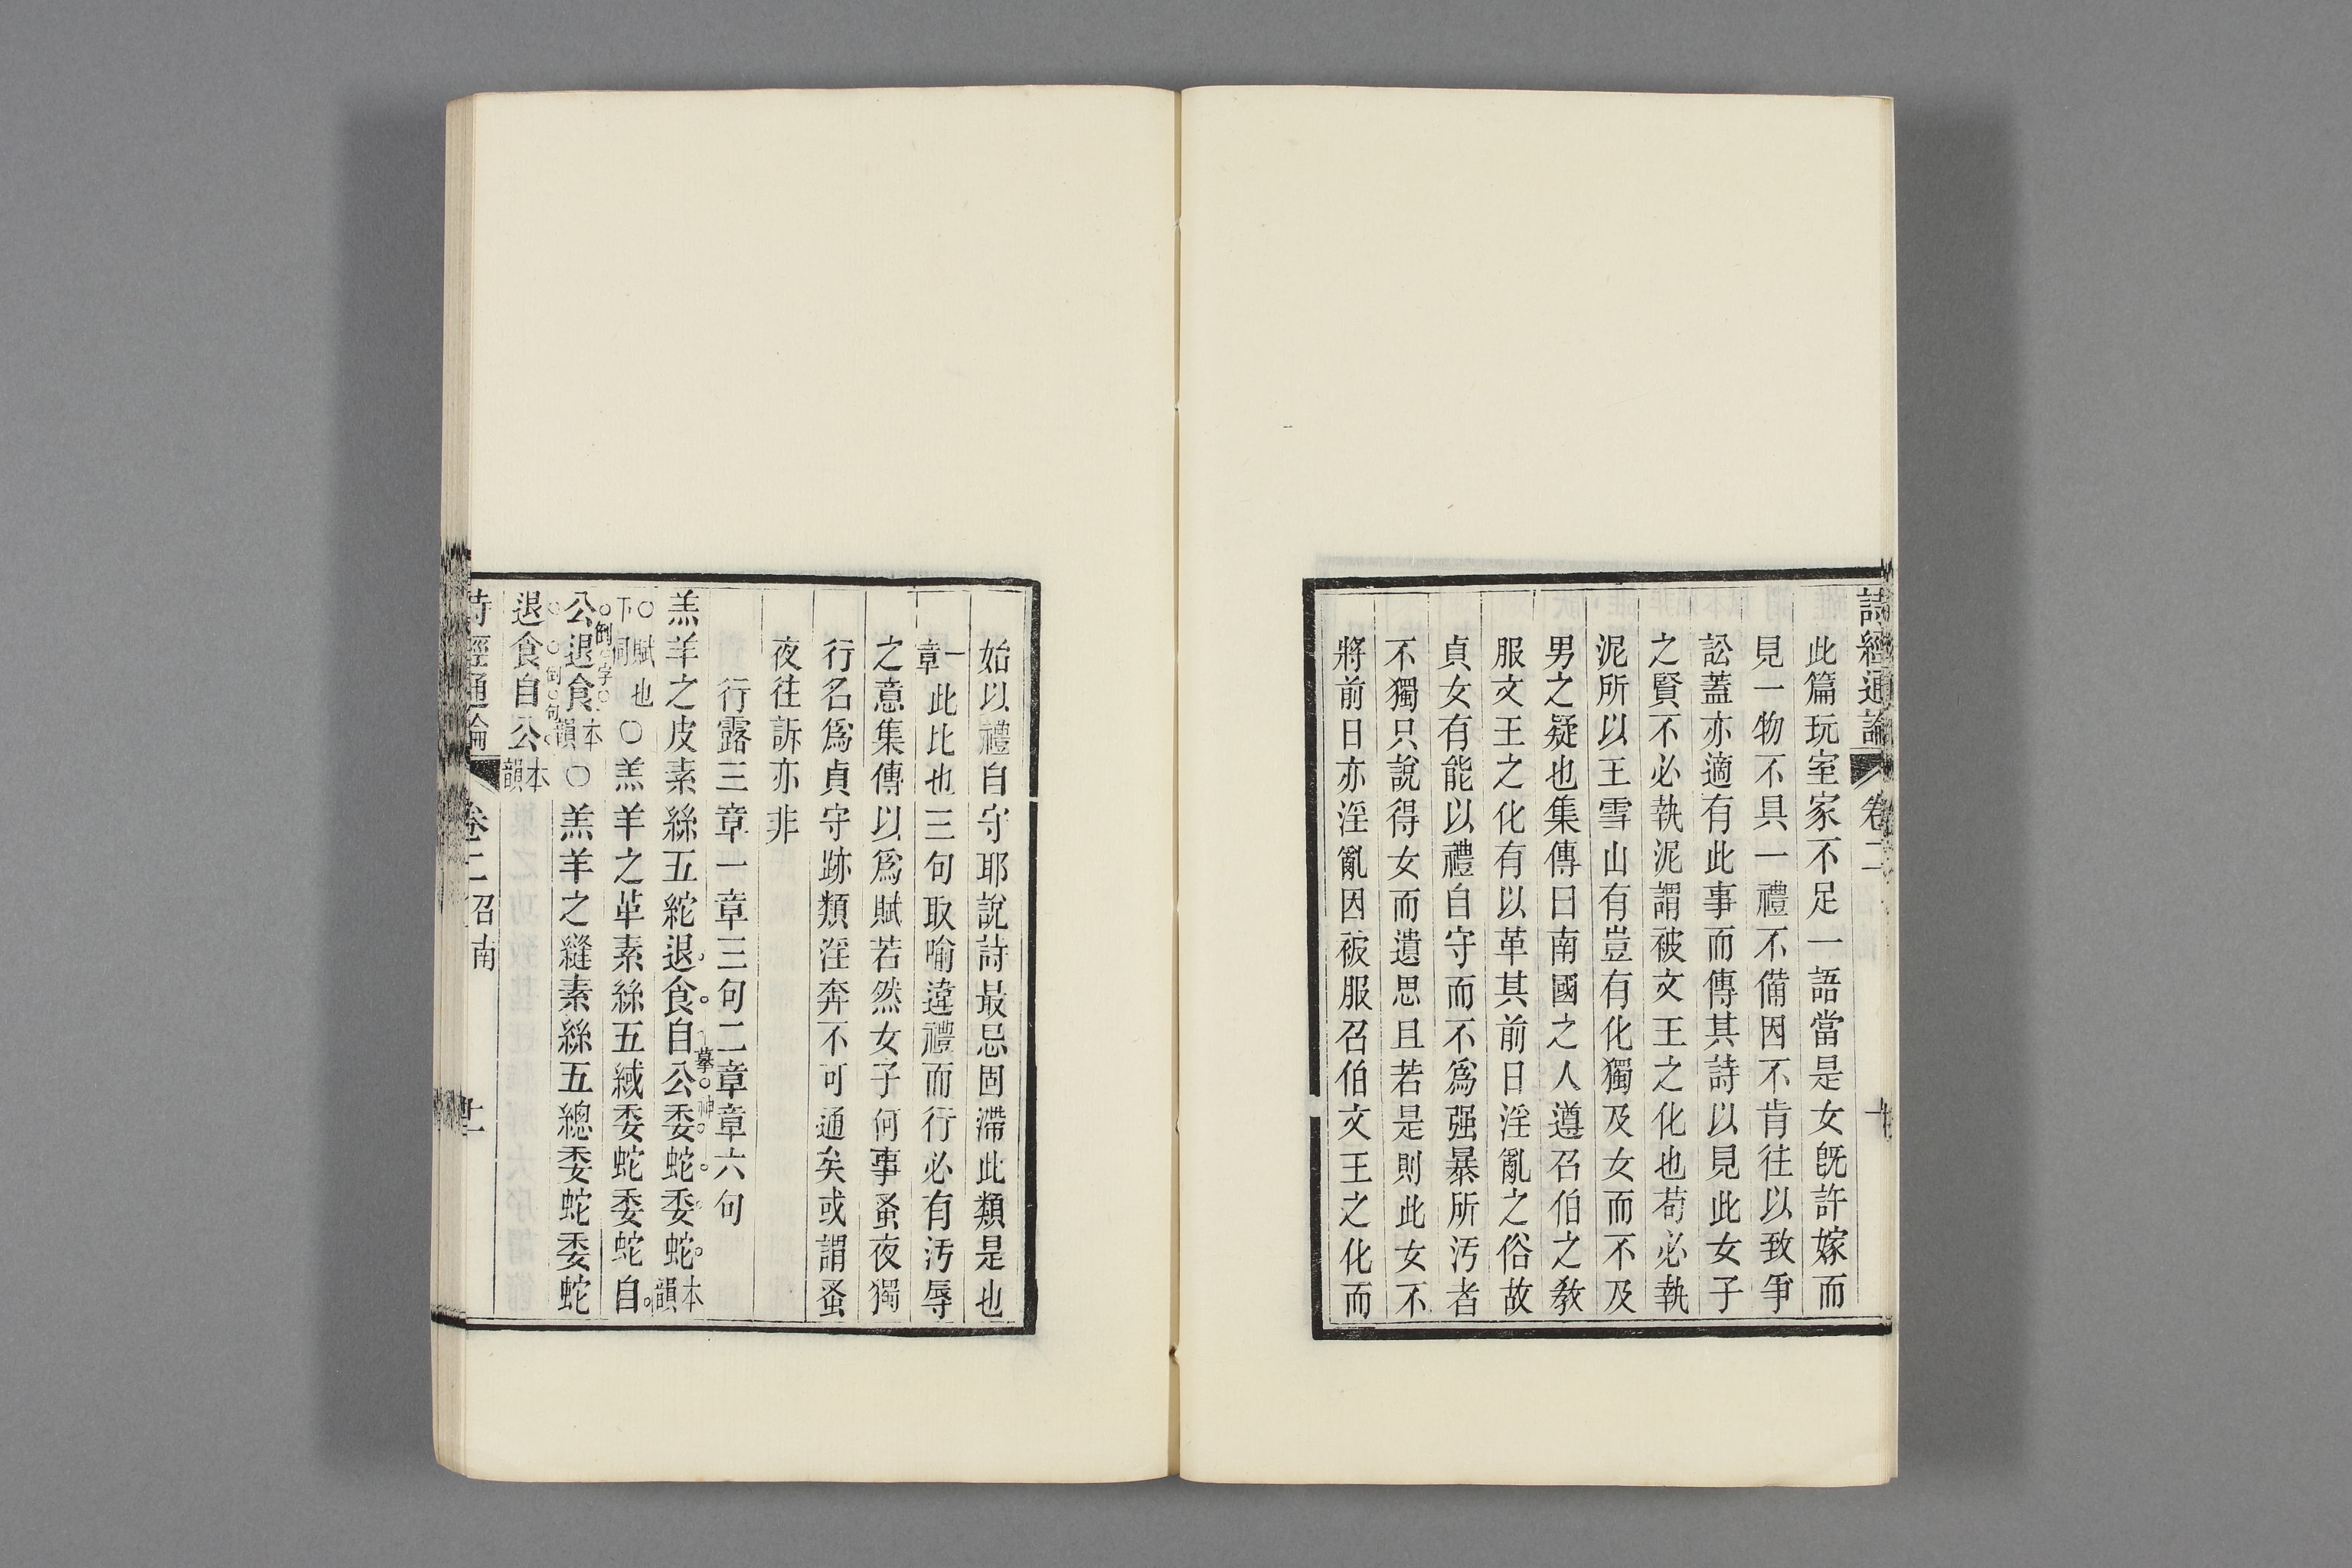 詩經通論 卷二
此篇玩室家不足一語當是女旣許嫁而
見一物不具一禮不備因不肯往以致爭
訟蓋亦適有此事而傳其詩以見此女子
之賢不必執泥謂被文王之化也苟必執
泥所以王雪山有豈有化獨及女而不及
男之疑也集傳曰南國之人遵召伯之敎
服文王之化有以革其前日淫亂之俗故
貞女有能以禮自守而不爲强暴所汚者
不獨只說得女而遺思且若是則此女不
將前日亦淫亂因被服召伯文王之化而
始以禮自守耶說詩最忌固滯此類是也
一章 此比也三句取喻違禮而行必有汚辱
之意集傳以爲賦若然女子何事蚤夜獨
行名爲貞守跡類淫奔不可通矣或謂蚤
夜往訴亦非
行露三章一章三句二章章六句
羔羊之皮素絲五紽退食自公委蛇委蛇本韻
摹神
○賦也下同○羔羊之革素絲五緎委蛇委蛇自
公退食本韻○羔羊之縫素絲五總委蛇委蛇
倒字
退食自公本韻
倒句
詩經通論 卷二 召南